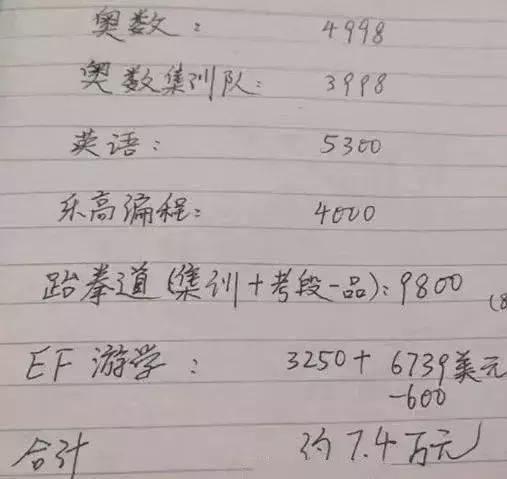 奥数: 4998
奥数集训队: 3998
英语: 5300
乐高编程: 4000
跆拳道(集训+考段一品): 9800 (8
EF 游学: 3250+ 6739美元
-600
合计 约7.4万元